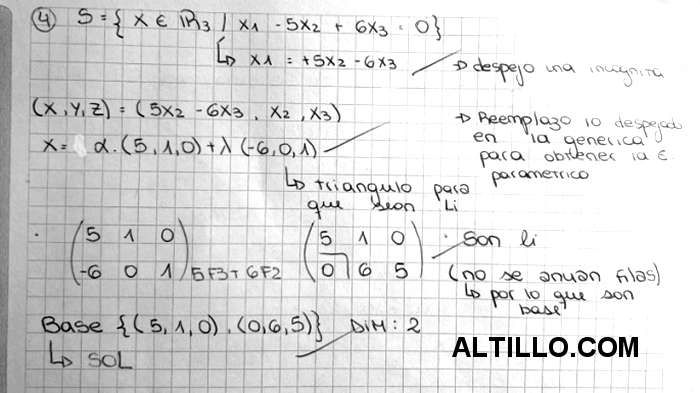 ④ S = { X ∈ IR3 / X1 - 5X2 + 6X3 = 0}
↳ X1 = +5X2 - 6X3 → despejo una incognita
(X, Y, Z) = (5X2 - 6X3, X2, X3) → Reemplazo lo despejado
en la generica
para obtener la E.
parametrico
X = α.(5,1,0) + λ (-6,0,1)
↳ triangulo para
que sean Li
(5 1 0) (5 1 0) · Son li
(-6 0 1) 5F3 + 6F2 (0 6 5) (no se anulan filas)
↳ por lo que son
base
Base {(5,1,0), (0,6,5)} DIM: 2
↳ SOL
ALTILLO.COM